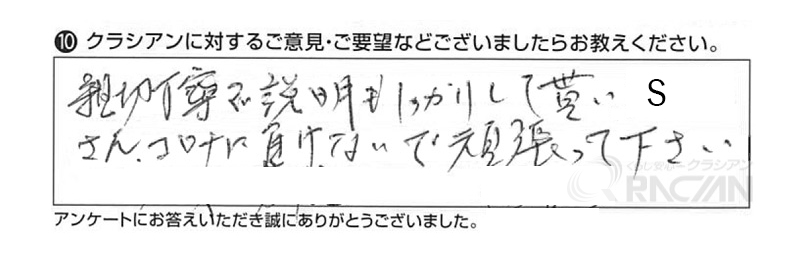 ⑩ クラシアンに対するご意見・ご要望などございましたらお教えください。
親切丁寧で説明もしっかりして貰い S
さん、コロナに負けないで頑張って下さい
くらし安心クラシアン
QRACIAN
アンケートにお答えいただき誠にありがとうございました。